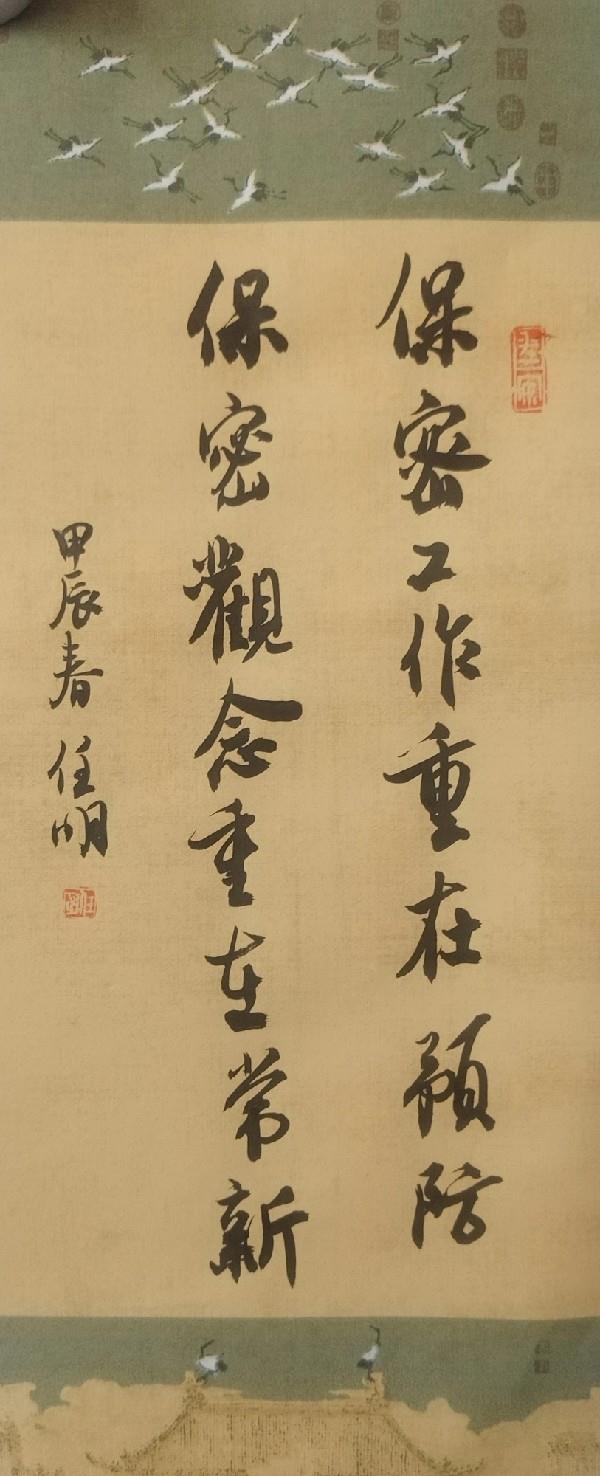 保密工作重在預防
保密觀念重在常新
甲辰春 任明